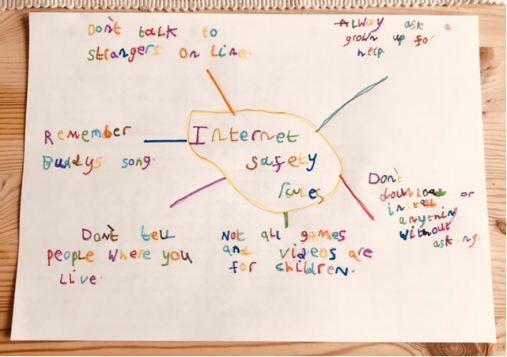 Don't talk to
strangers on line.
Always ask a
grown up for
help
Internet
safety
rules
Remember
Buddys song.
Don't
download or
install
anything
without
asking.
Don't tell
people where you
Live.
Not all games
and videos are
for children.